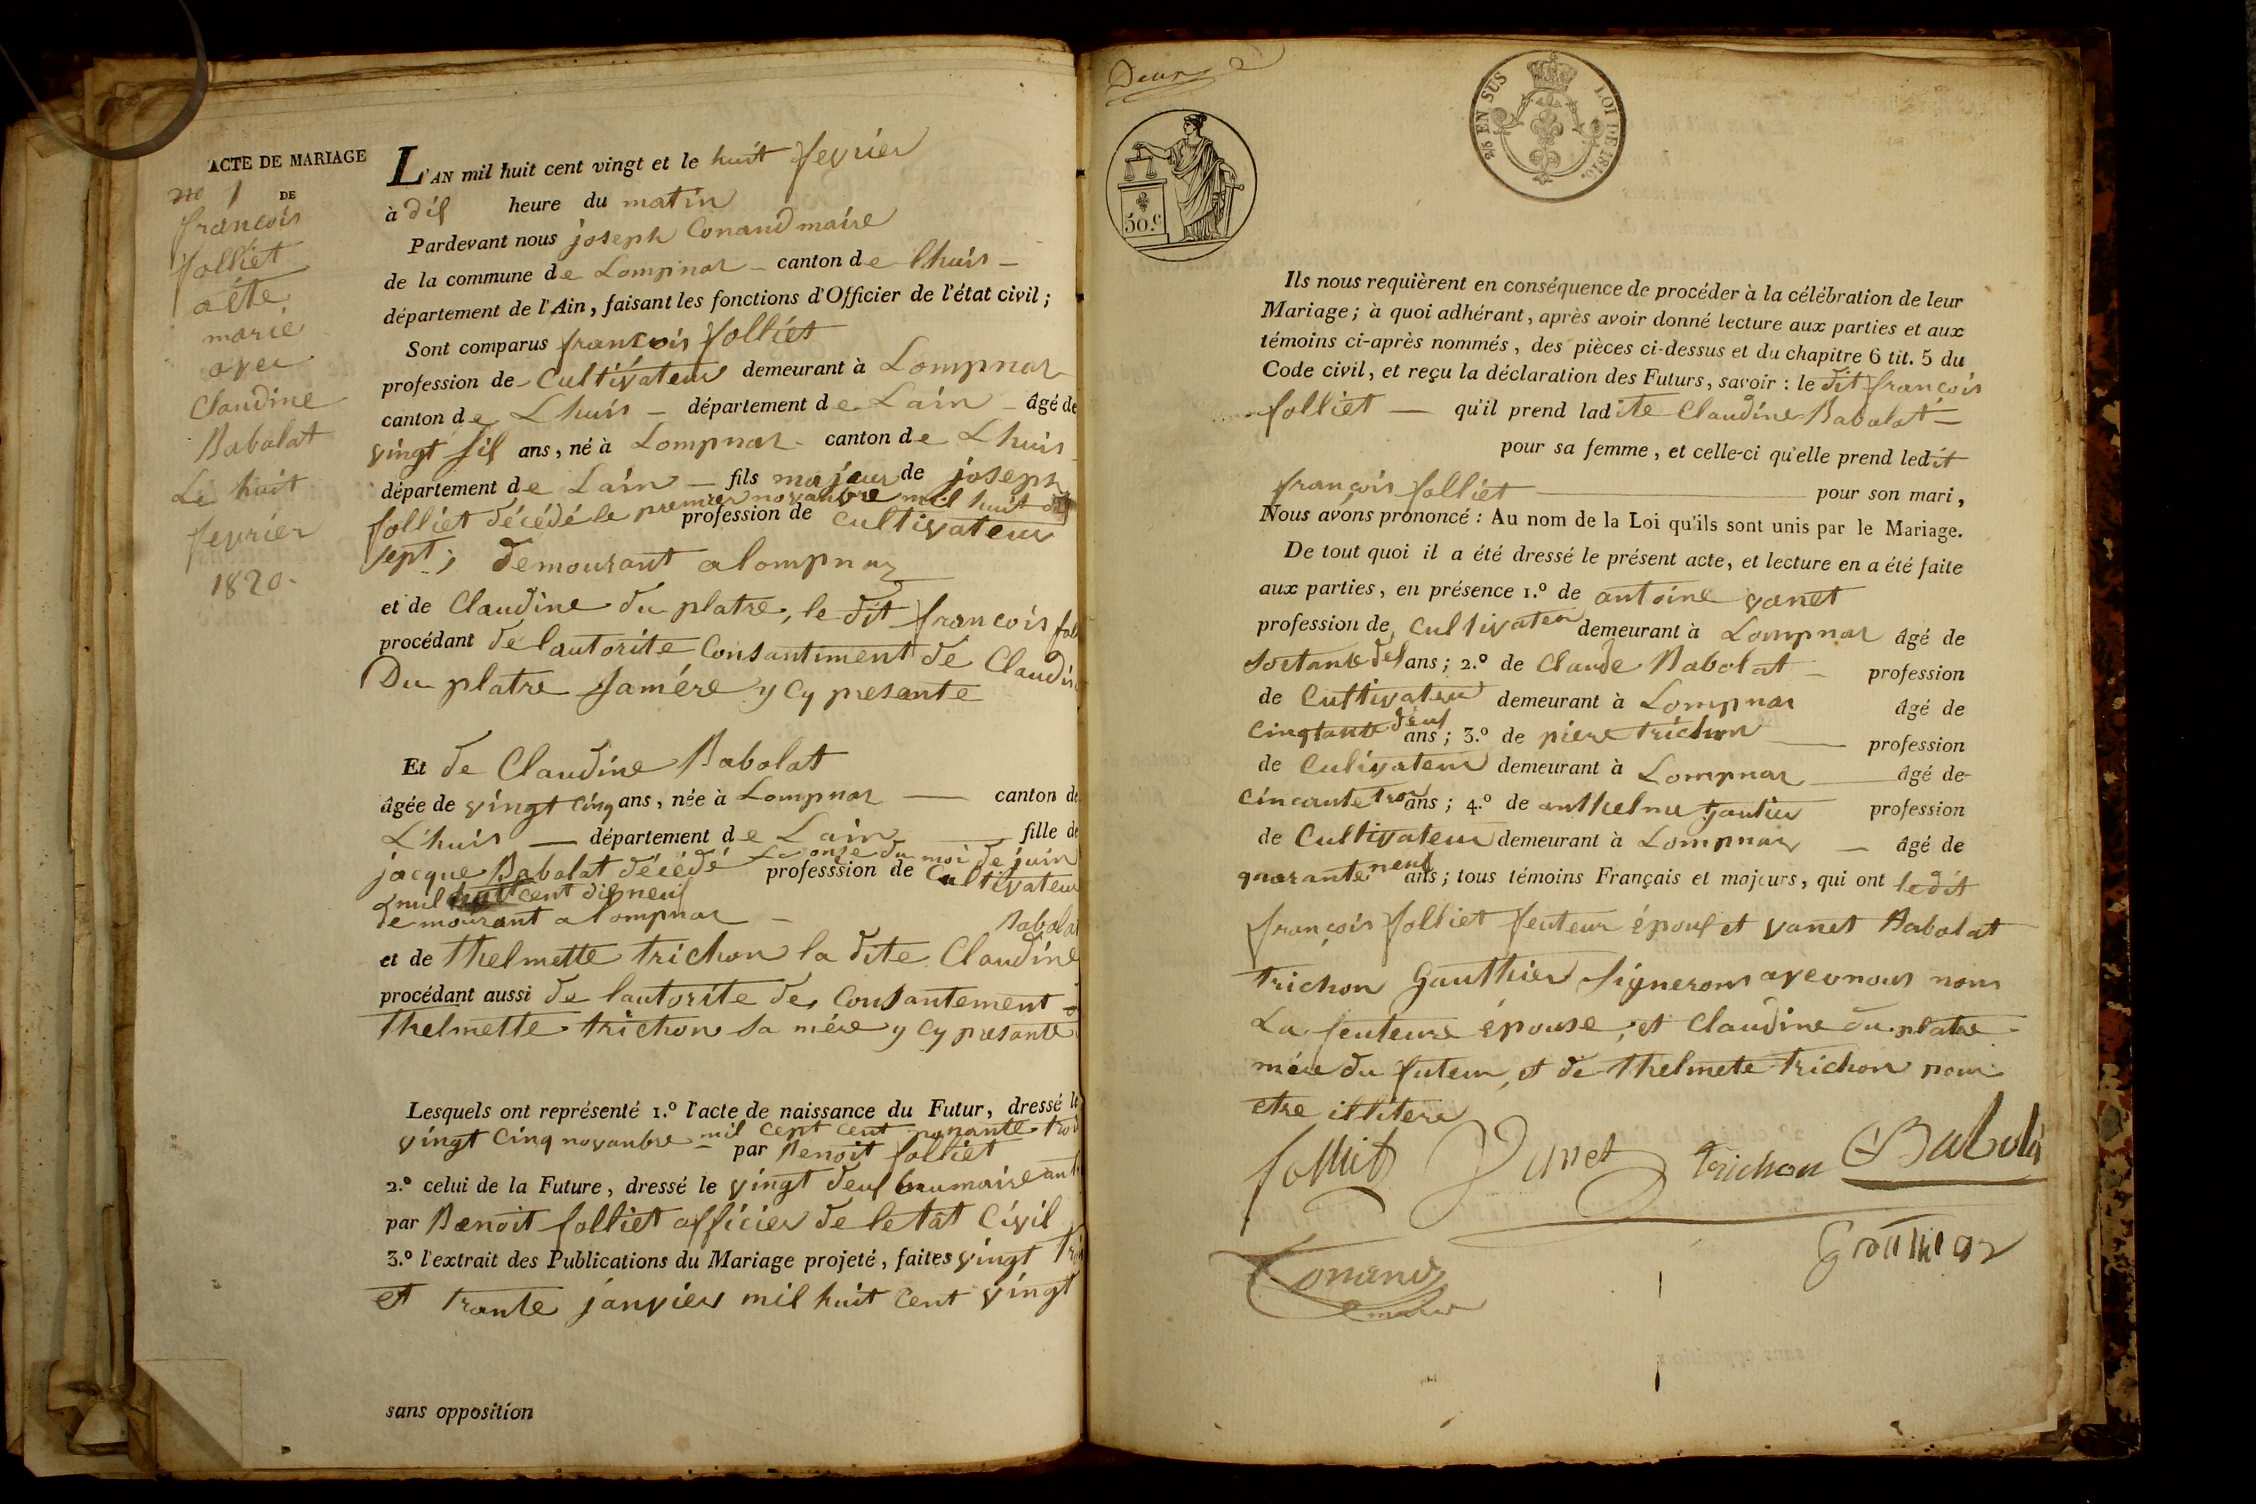 ACTE DE MARIAGE
no 1 DE
francois
folliet
a éte
marie
avec
Claudine
Babolat
Le huit
fevrier
1820.
L'AN mil huit cent vingt et le huit fevrier
à dix heure du matin
Pardevant nous joseph Conand maire
de la commune de Lompnar - canton de lhuis -
département de l'Ain, faisant les fonctions d'Officier de l'état civil;
Sont comparus francois folliet
profession de Cultivateur demeurant à Lompnar
canton de Lhuis - département de Lain - âgé de
vingt six ans, né à Lompnar - canton de Lhuis
département de Lain - fils majeur de joseph
folliet décédé le premier novanbre mil huit
profession de cultivateur
sept; demourant a lompnar
et de Claudine du platre, le dit francois
procédant de lautorite Consantiment de Claudine
Du platre Samére y Cy presante
Et de Claudine Babolat
âgée de vingt cinq ans, née à Lompnar — canton de
Lhuis — département de Lain — fille de
jacque Babolat décédé Le onse du moi de juin
professsion de Cultivateur
mil huit cent dix neuf
demourant a lompnar -
Babolat
et de thelmette trichon la dite Claudine
procédant aussi de lautorite de Consantement
thelmette trichon sa mére y Cy presante
Lesquels ont représenté 1.º l'acte de naissance du Futur, dressé le
vingt Cinq novanbre mil cept cent nonante trois
par Benoit folliet
2.º celui de la Future, dressé le vingt deux brumaire an
par Benoit folliet officier de letat Civil
3.º l'extrait des Publications du Mariage projeté, faites vingt trois
et trante janvier mil huit cent vingt
sans opposition
Deux
50.c
2/5 EN SUS LOI DE 1816.
Ils nous requièrent en conséquence de procéder à la célébration de leur
Mariage; à quoi adhérant, après avoir donné lecture aux parties et aux
témoins ci-après nommés, des pièces ci-dessus et du chapitre 6 tit. 5 du
Code civil, et reçu la déclaration des Futurs, savoir: le dit françois
folliet — qu'il prend ladite Claudine Babolat -
pour sa femme, et celle-ci qu'elle prend ledit
françois folliet — pour son mari,
Nous avons prononcé: Au nom de la Loi qu'ils sont unis par le Mariage.
De tout quoi il a été dressé le présent acte, et lecture en a été faite
aux parties, en présence 1.º de antoine vanet
profession de Cultivateur demeurant à Lompnar âgé de
soitante dix ans; 2.º de Claude Babolat - profession
de Cultivateur demeurant à Lompnar âgé de
Cinqtante deux ans; 3.º de piere trichon — profession
de Culivateur demeurant à Lompnar — âgé de
Cincante trois ans; 4.º de anthelme gautier profession
de Cultivateur demeurant à Lompnar - âgé de
quarante neuf ans; tous témoins Français et majeurs, qui ont le dit
françois folliet feuteur époux et vanet Babolat
trichon Gauthier Signerons avec nous nom
La feuteure épouse, et Claudine du platre
mére du futeur, et de thelmete trichon pour
etre illitere
folliet Vanet trichon Babolat
Gauthier
Conand
maire